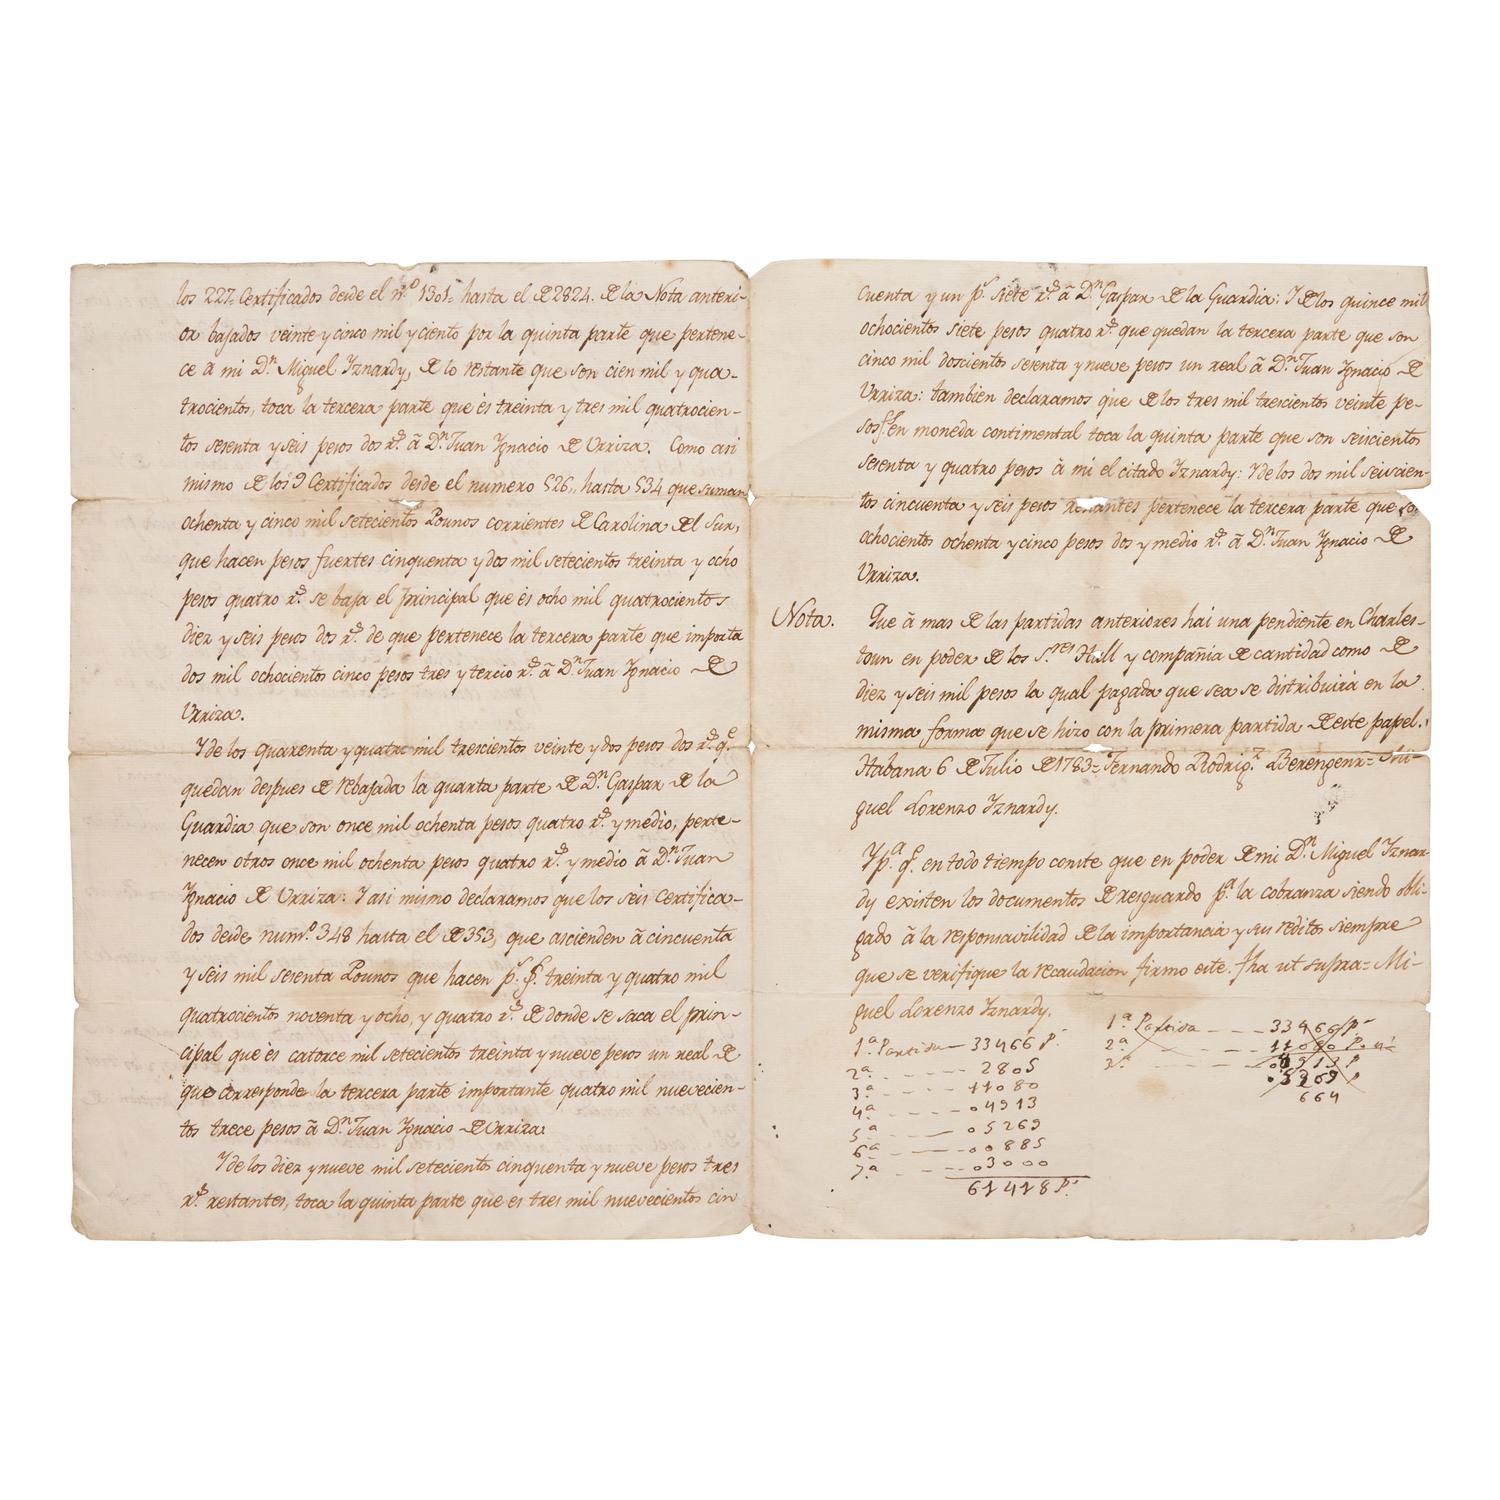 los 227. Certificados desde el n.º 1301. hasta el de 2824. de la Nota anteri-
or bajados veinte y cinco mil y ciento por la quinta parte que pertene-
ce a mi D.n Miguel Yznardy, de lo restante que son cien mil y qua-
trocientos, toca la tercera parte que és treinta y tres mil quatrocien-
tos sesenta y seis pesos dos r.s â D.n Juan Ygnacio de Urriza. Como asi
mismo de los 9 Certificados desde el numero 526,, hasta 534 que suman
ochenta y cinco mil setecientos Pounos corrientes de Carolina del Sur,
que hacen pesos fuertes cinquenta y dos mil setecientos treinta y ocho
pesos quatro r.s se baja el principal que és ocho mil quatrocientos
diez y seis pesos dos r.s de que pertenece la tercera parte que importa
dos mil ochocientos cinco pesos tres y tercio r.s â D.n Juan Ygnacio de
Urriza.
Y de los quarenta y quatro mil trescientos veinte y dos pesos dos r.s q.e
quedan despues de rebajada la quarta parte de D.n Gaspar de la
Guardia que son once mil ochenta pesos quatro r.s y medio, perte-
necen otros once mil ochenta pesos quatro r.s y medio â D.n Juan
Ygnacio de Urriza: Y asi mismo declaramos que los seis Certifica-
dos desde num.º 348 hasta el de 353, que ascienden â cincuenta
y seis mil sesenta Pounos que hacen p.s f.s treinta y quatro mil
quatrocientos noventa y ocho, y quatro r.s de donde se saca el prin-
cipal que és catorce mil setecientos treinta y nueve pesos un real de
que corresponde la tercera parte importante quatro mil nuevecien-
tos trece pesos â D.n Juan Ygnacio de Urriza.
Y de los diez y nueve mil setecientos cinquenta y nueve pesos tres
r.s restantes, toca la quinta parte que es tres mil nuevecientos cin
cuenta y un p.s siete r.s â D.n Gaspar de la Guardia: Y de los quince mil
ochocientos siete pesos quatro r.s que quedan la tercera parte que son
cinco mil doscientos sesenta y nueve pesos un real â D.n Juan Ygnacio de
Urriza: tambien declaramos que de los tres mil trescientos veinte pe-
sos f.s en moneda contimental toca la quinta parte que son seiscientos
sesenta y quatro pesos â mi el citado Yznardy: Y de los dos mil seiscien-
tos cincuenta y seis pesos restantes pertenece la tercera parte que son
ochocientos ochenta y cinco pesos dos y medio r.s â D.n Juan Ygnacio de
Urriza.
Nota. Que â mas de las partidas anteriores hai una pendiente en Charles-
toun en poder de los S.res Hull y compañia de cantidad como de
diez y seis mil pesos la qual pagada que sea se distribuirá en la
misma forma que se hizo con la primera partida de este papel.
Habana 6 de Julio de 1783= Fernando Rodrig.z Berengenr= Mi-
guel Lorenzo Yznardy.
Y p.a q.e en todo tiempo conste que en poder de mi D.n Miguel Yznar-
dy existen los documentos de resguardo p.a la cobranza siendo obli-
gado â la responsavilidad de la importancia y sus reditos siempre
que se verifique la recaudacion firmo este. fha ut supra= Mi-
guel Lorenzo Yznardy.
1.a Partida 33466 P.s
2.a 2805
3.a 11080
4.a 04913
5.a 05269
6.a 00885
7.a 03000
61418 P.s
1.a Partida 33466 P.s
2.a 11080 P.s
3.a 04913 P
05269 P
664